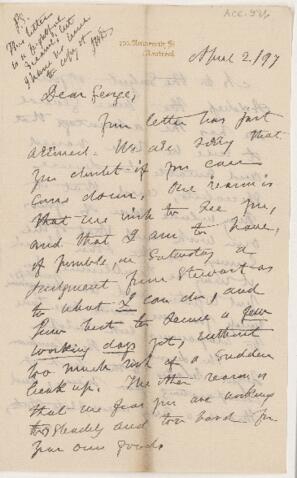 ACC. 526
P.S.
This letter
is a
I have no time
to copy it
150 University St
Montreal
April 2./97
Dear George,
Your letter has just
arrived. We are sorry that
you doubt if you can
come down. One reason is
that we wish to see you,
and that I am to have,
if possible, on Saturday a
judgment from Stewart as
to what I can do, and
how best to secure a few
working days yet, without
too much risk of a sudden
break up. The other reason is
that we fear you are working
too steadily and too hard for
your own good.